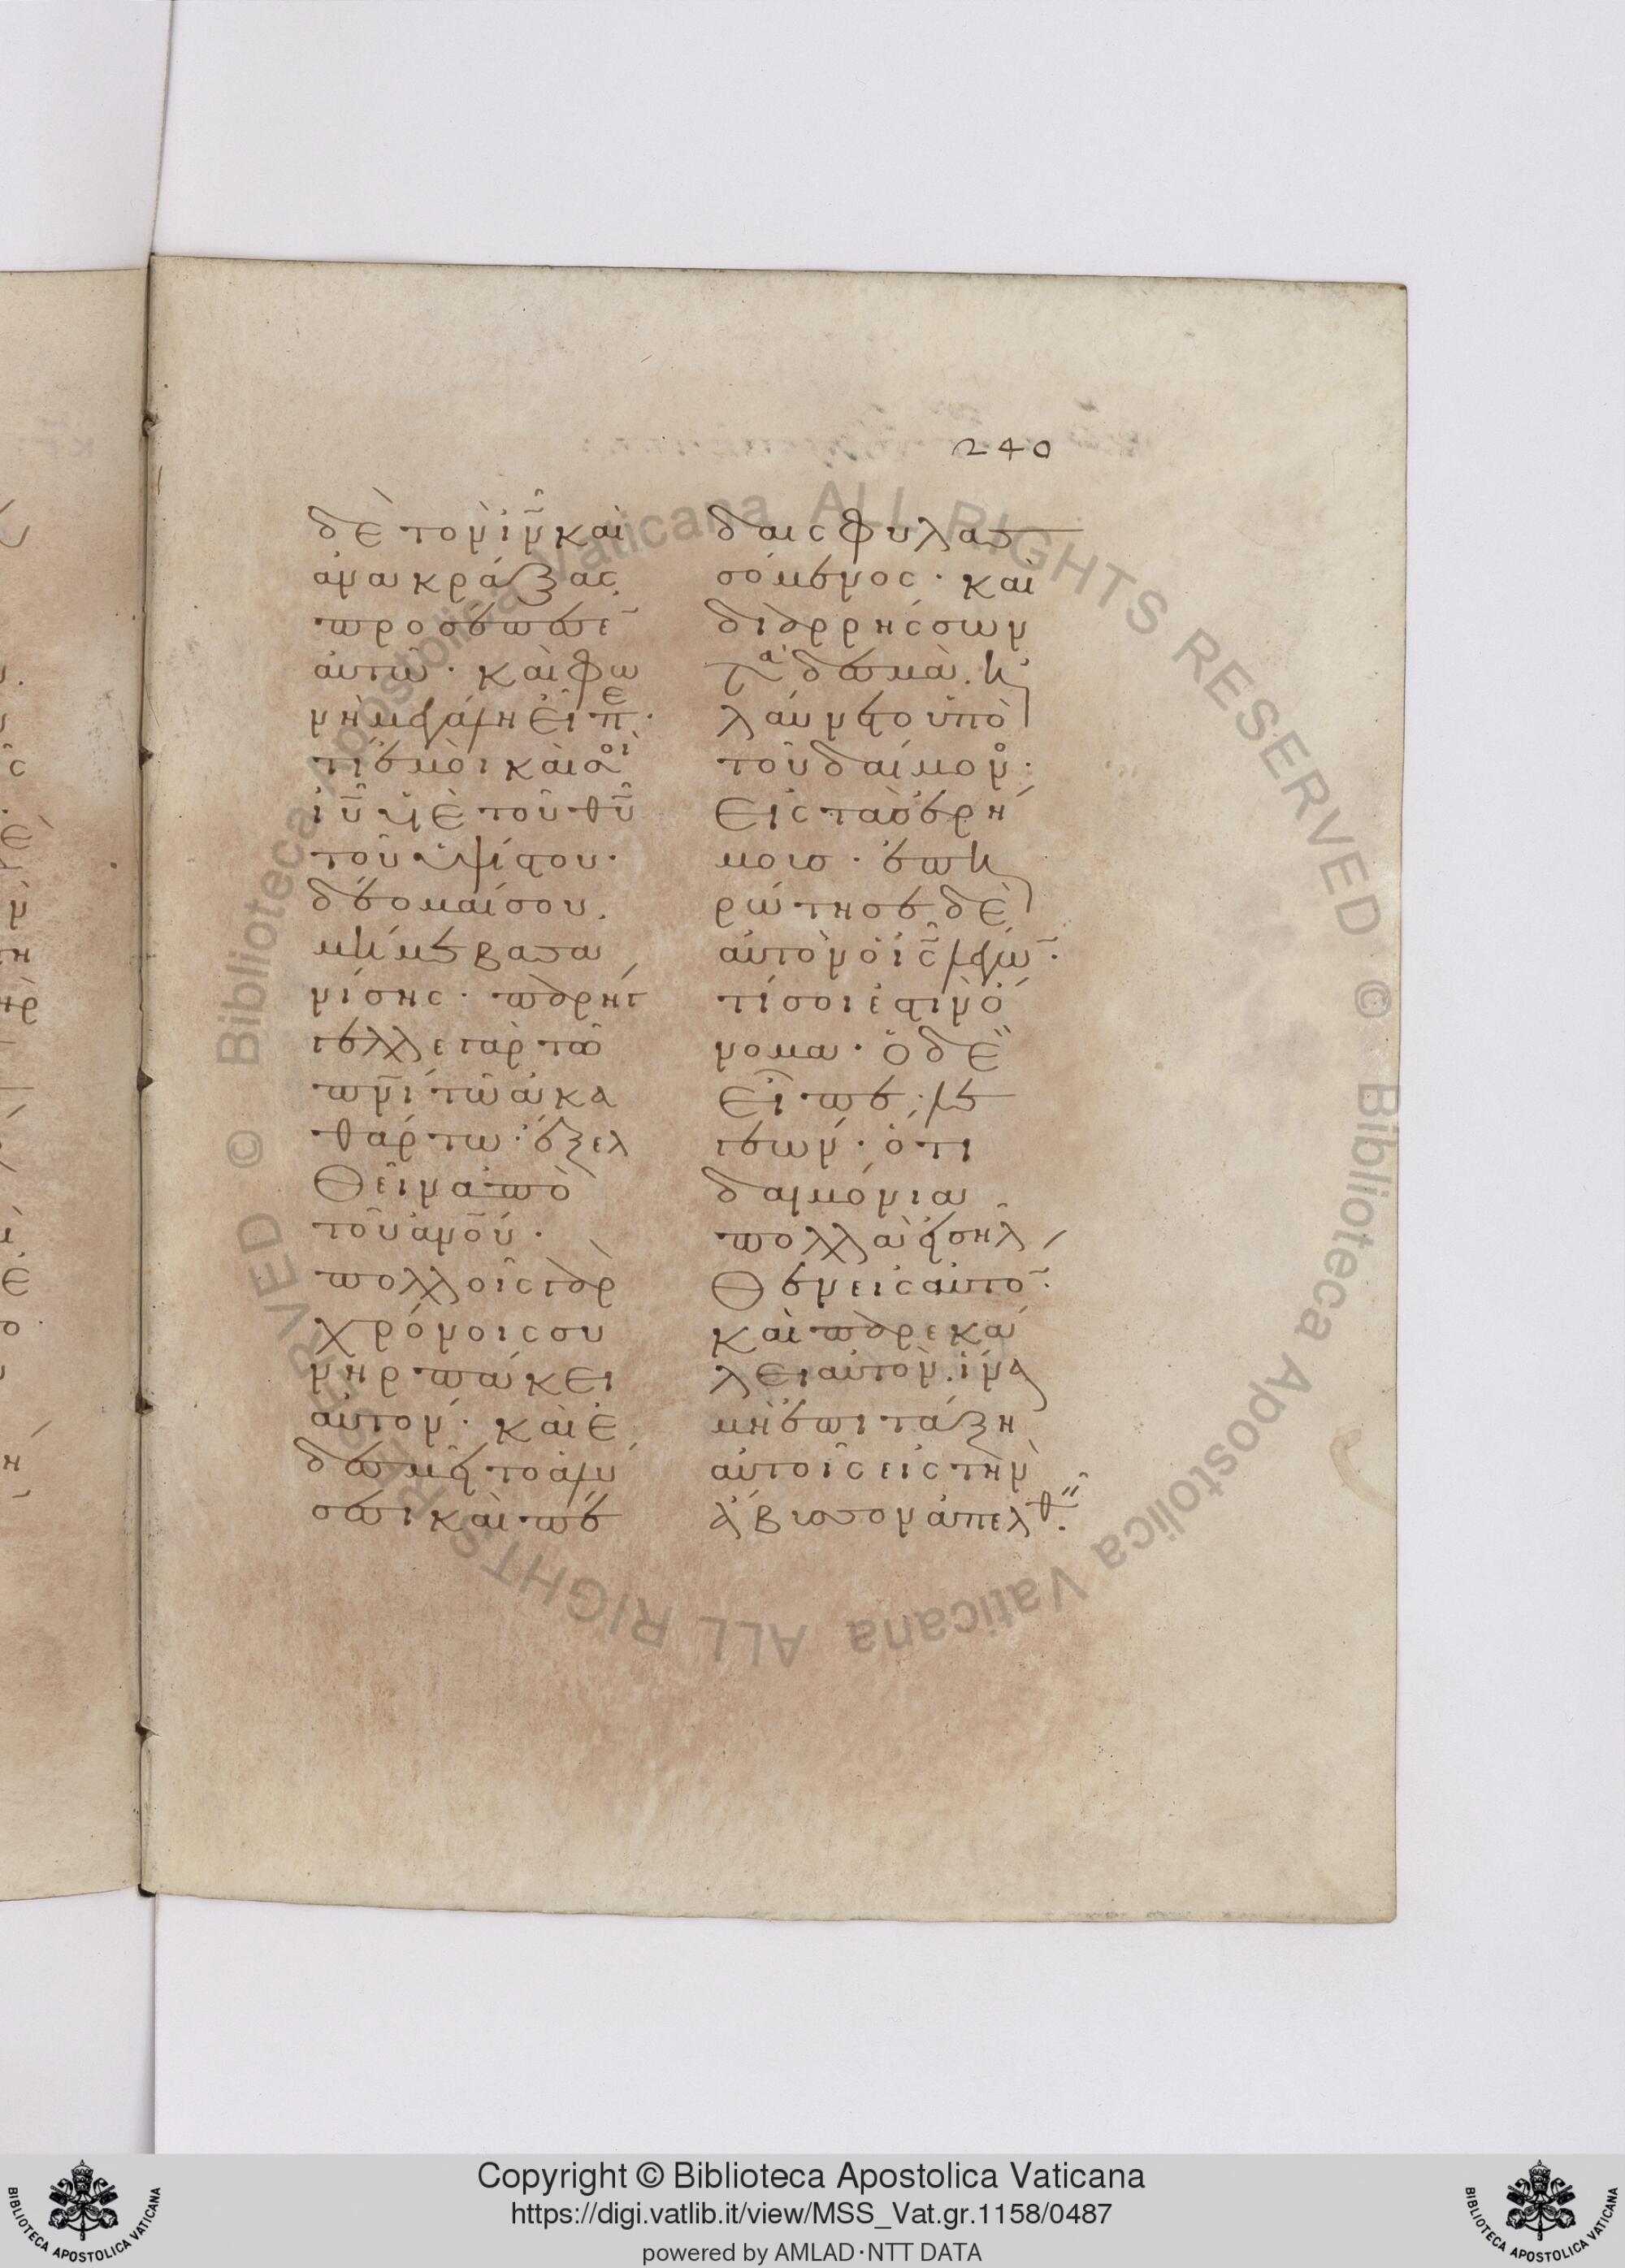 240
δὲ τὸν ιν̅ καὶ
ἀνακράξας
προσέπεσε
αὐτῶ· καὶ φω
νῆ μεγάλη εἶπε·
τί ἐμοὶ καὶ σοὶ
ιυ̅ υἱὲ τοῦ θυ̅
τοῦ ὑψίστου·
δέομαί σου,
μή με βασα
νίσης· παρήγ
γελλε γὰρ τῶ
πνι̅ τῶ ἀκα
θάρτω· ἐξελ
θεῖν ἀπὸ
τοῦ ἀνου̅·
πολλοῖς γὰρ
χρόνοις συ
νηρπάκει
αὐτόν· καὶ ἐ
δεσμεῖτο ἁλύ
σεσι καὶ πέ
δαις φυλασ
σόμενος· καὶ
διαρρήσσων
τὰ δεσμὰ. ἠ
λαύνετο ὑπὸ
τοῦ δαίμονος·
εἰς τὰς ἐρή
μους· ἐπη
ρώτησε δὲ
αὐτὸν ὁ ις̅ λέγων·
τί σοι ἐστὶν ὄ
νομα· ὁ δὲ
εἶπε· λε
γεών· ὅτι
δαιμόνια
πολλὰ εἰσῆλ
θεν εἰς αὐτόν·
καὶ παρεκά
λει αὐτὸν. ἵνα
μὴ ἐπιτάξη
αὐτοῖς εἰς τὴν
ἄβυσσον ἀπελθεῖν.
Copyright © Biblioteca Apostolica Vaticana
https://digi.vatlib.it/view/MSS_Vat.gr.1158/0487
powered by AMLAD·NTT DATA
BIBLIOTECA APOSTOLICA VATICANA
BIBLIOTECA APOSTOLICA VATICANA
© Biblioteca Apostolica Vaticana ALL RIGHTS RESERVED
© Biblioteca Apostolica Vaticana ALL RIGHTS RESERVED